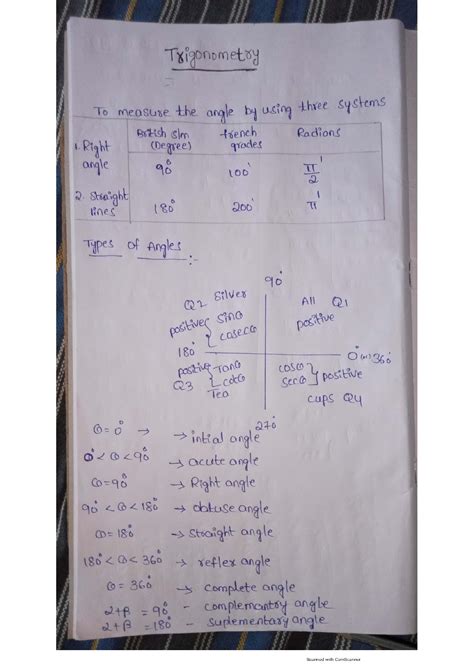 Trigonometry
To measure the angle by using three systems
British s/m (Degree) french grades Radians
1. Right angle 90° 100' π/2'
2. Straight lines 180° 200' π'
Types of Angles :-
90°
Q2 Silver All Q1
positive { sinθ cosecθ positive
180° 0° (or) 360°
positive - tanθ cotθ cosθ secθ } positive
Q3 Tea cups Q4
270°
θ = 0° → → intial angle
0° < θ < 90° → acute angle
θ = 90° → Right angle
90° < θ < 180° → obtuse angle
θ = 180° → straight angle
180° < θ < 360° → reflex angle
θ = 360° → complete angle
α+β = 90° - complemantry angle
α+β = 180° - suplementary angle
Scanned with CamScanner